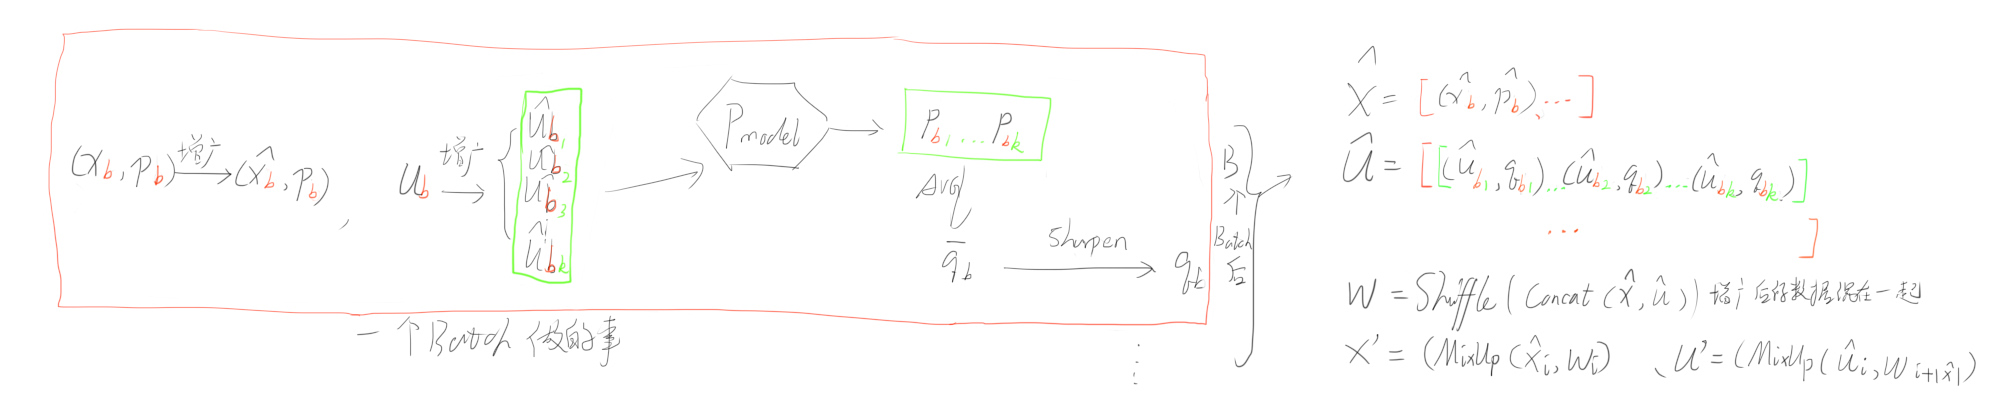 (x_b, p_b) 增广→ (x̂_b, p_b) ,
u_b 增广→
û_b1
û_b2
û_b3
û_bk
P model
P_b1 ... P_bk
AVG
q̄_b
Sharpen
q_b
一个Batch做的事
B个Batch后
X̂ = [(x̂_b, p̂_b), ...]
Û = [[(û_b1, q_b1)...(û_b2, q_b2)...(û_bk, q_bk)]
... ]
W = Shuffle(Concat(X̂, û)) 增广后的数据混在一起
X' = (MixUp(X̂_i, W_i) 、U' = (MixUp(û_i, W_i+|X̂|)